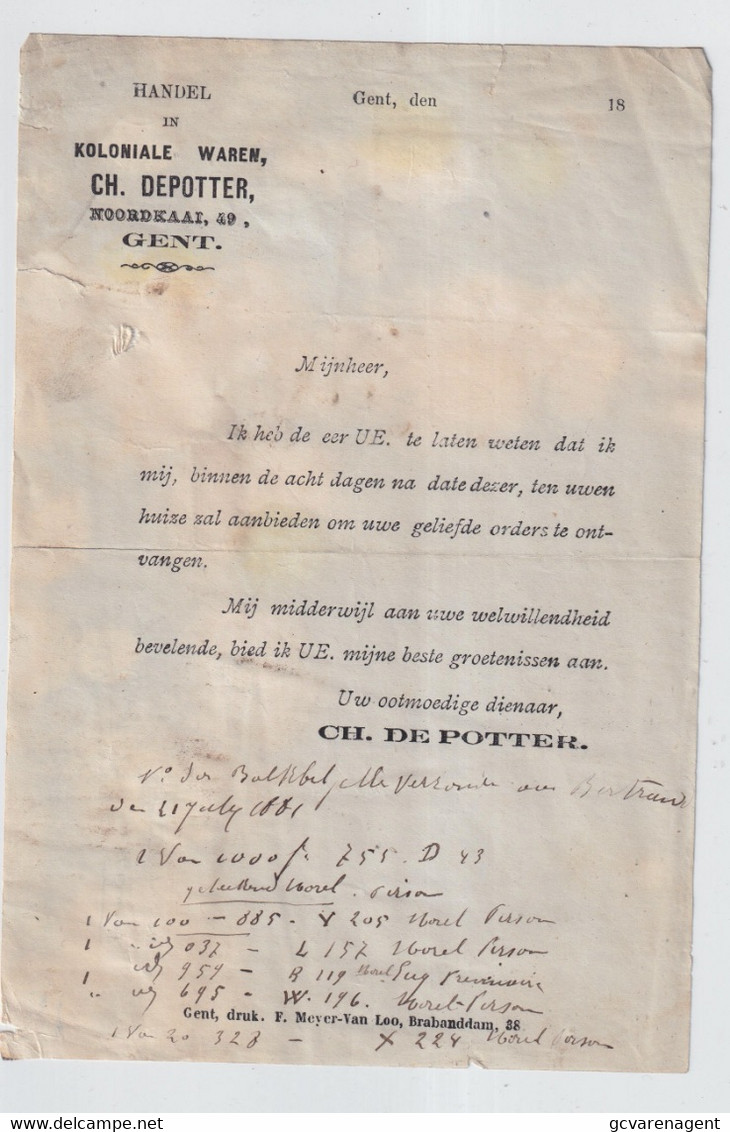 HANDEL
IN
KOLONIALE WAREN,
CH. DEPOTTER,
NOORDKAAI, 49,
GENT.
Gent, den 18
Mijnheer,
Ik heb de eer UE. te laten weten dat ik
mij, binnen de acht dagen na date dezer, ten uwen
huize zal aanbieden om uwe geliefde orders te ont-
vangen.
Mij midderwijl aan uwe welwillendheid
bevelende, bied ik UE. mijne beste groetenissen aan.
Uw ootmoedige dienaar,
CH. DE POTTER.
Bertrand
den 21 july 1881
1 Van 1000 fr 755. D 43
Morel. Pirson
1 Van 100 - 885 - Y 205 Morel Pirson
1 037 - L 157 Morel Pirson
1 959 - R 119 Morel Eug
" 695 - W. 196. Morel-Pirson
Gent, druk. F. Meyer-Van Loo, Brabanddam, 38
1 Van 20 328 - X 224 Morel Pirson
gcvarenagent